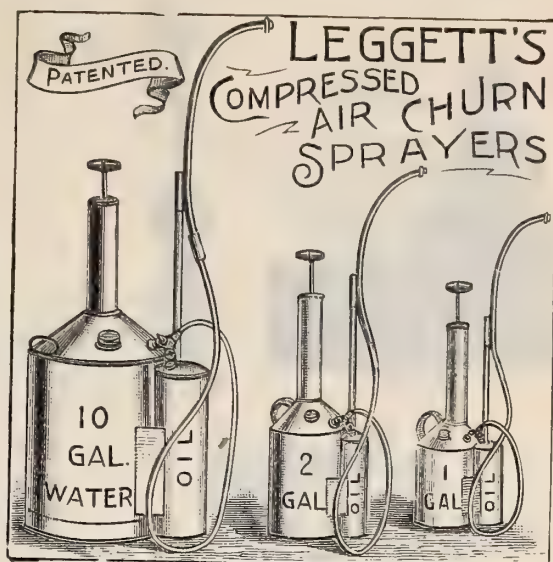 PATENTED.
LEGGETT'S
COMPRESSED
AIR CHURN
SPRAYERS
10
GAL.
WATER
OIL
2
GAL
OIL
1
GAL
OIL